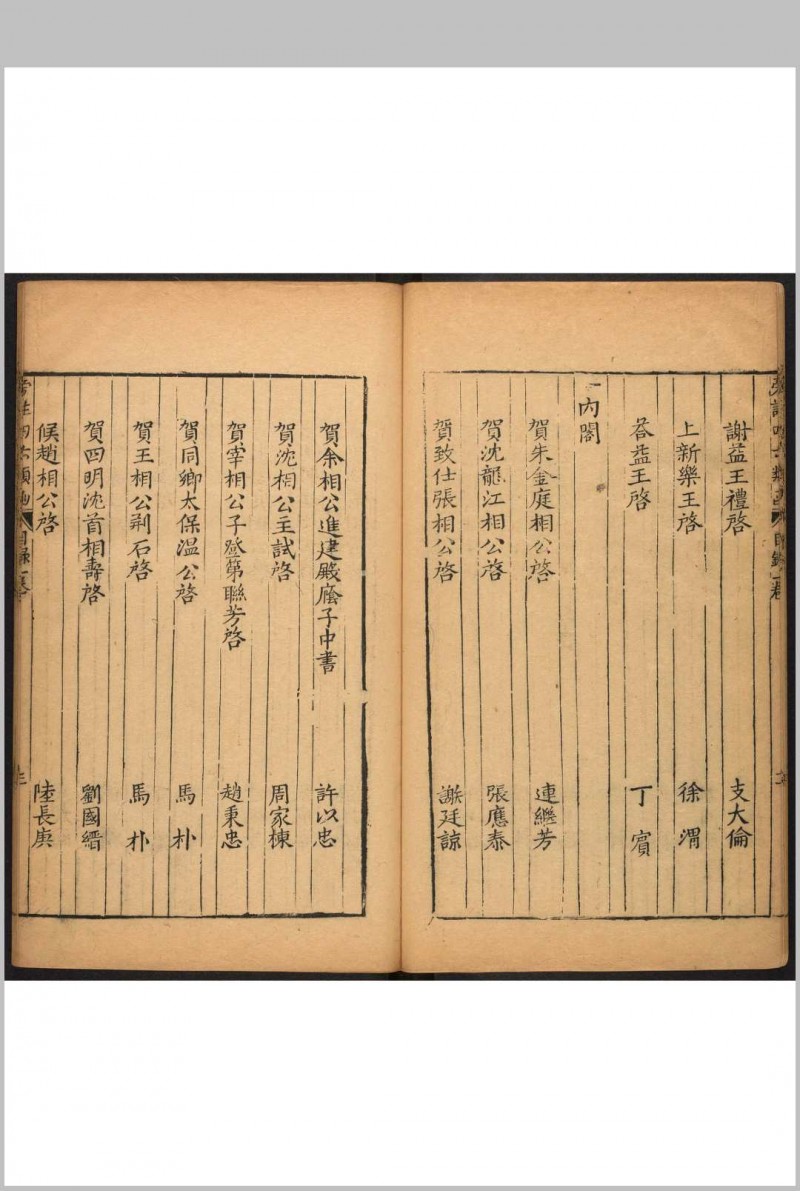 謝益王禮啓 支大倫
上新樂王啓 徐渭
荅益王啓 丁賓
一內閣
賀朱金庭相公啓 連繼芳
賀沈龍江相公啓 張應泰
賀致仕張相公啓 謝廷諒
賀余相公進建殿廕子中書 許以忠
賀沈相公主試啓 周家棟
賀宰相公子登第聯芳啓 趙秉忠
賀同鄉太保溫公啓 馬朴
賀王相公荆石啓 馬朴
賀四明沈首相壽啓 劉國縉
候趙相公啓 陸長庚